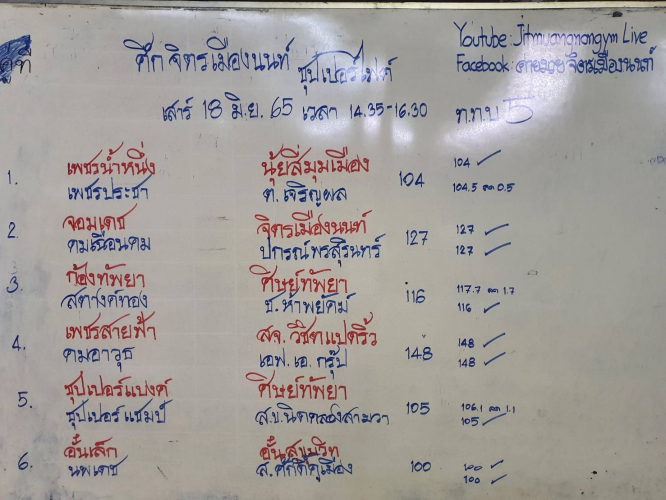 คู่ที่
ศึก จิตรเมืองนนท์ ซุปเปอร์ไฟต์
Youtube: Jitmuangnongym Live
Facebook: ค่ายมวย จิตรเมืองนนท์
เสาร์ 18 มิ.ย. 65 เวลา 14.35-16.30 ท.ท.บ 5
1. เพชรน้ำหนึ่ง นุ้ยสี่มุมเมือง 104 104 ✓
เพชรประชา ต.เจริญผล 104.5 ลด 0.5
2. จอมเดช จิตรเมืองนนท์ 127 127 ✓
คมเฉือนคม ปกรณ์พรสุรินทร์ 127 ✓
3. ก้องทัพยา ศิษย์ทัพยา 116 117.7 ลด 1.7
สตางค์ทอง ช.ห้าพยัคฆ์ 116 ✓
4. เพชรสายฟ้า สจ.วิชิตแปดริ้ว 148 148 ✓
คมอาวุธ เอฟ.เอ.กรุ๊ป 148 ✓
5. ซุปเปอร์แบงค์ ศิษย์ทัพยา 105 106.1 ลด 1.1
ซุปเปอร์แชมป์ ส.ข.นิดคลองสามวา 105 ✓
6. อั๋นเล็ก อั๋นสุขุมวิท 100 100 ✓
นพเดช ส.ศักดิ์คูเมือง 100 ✓